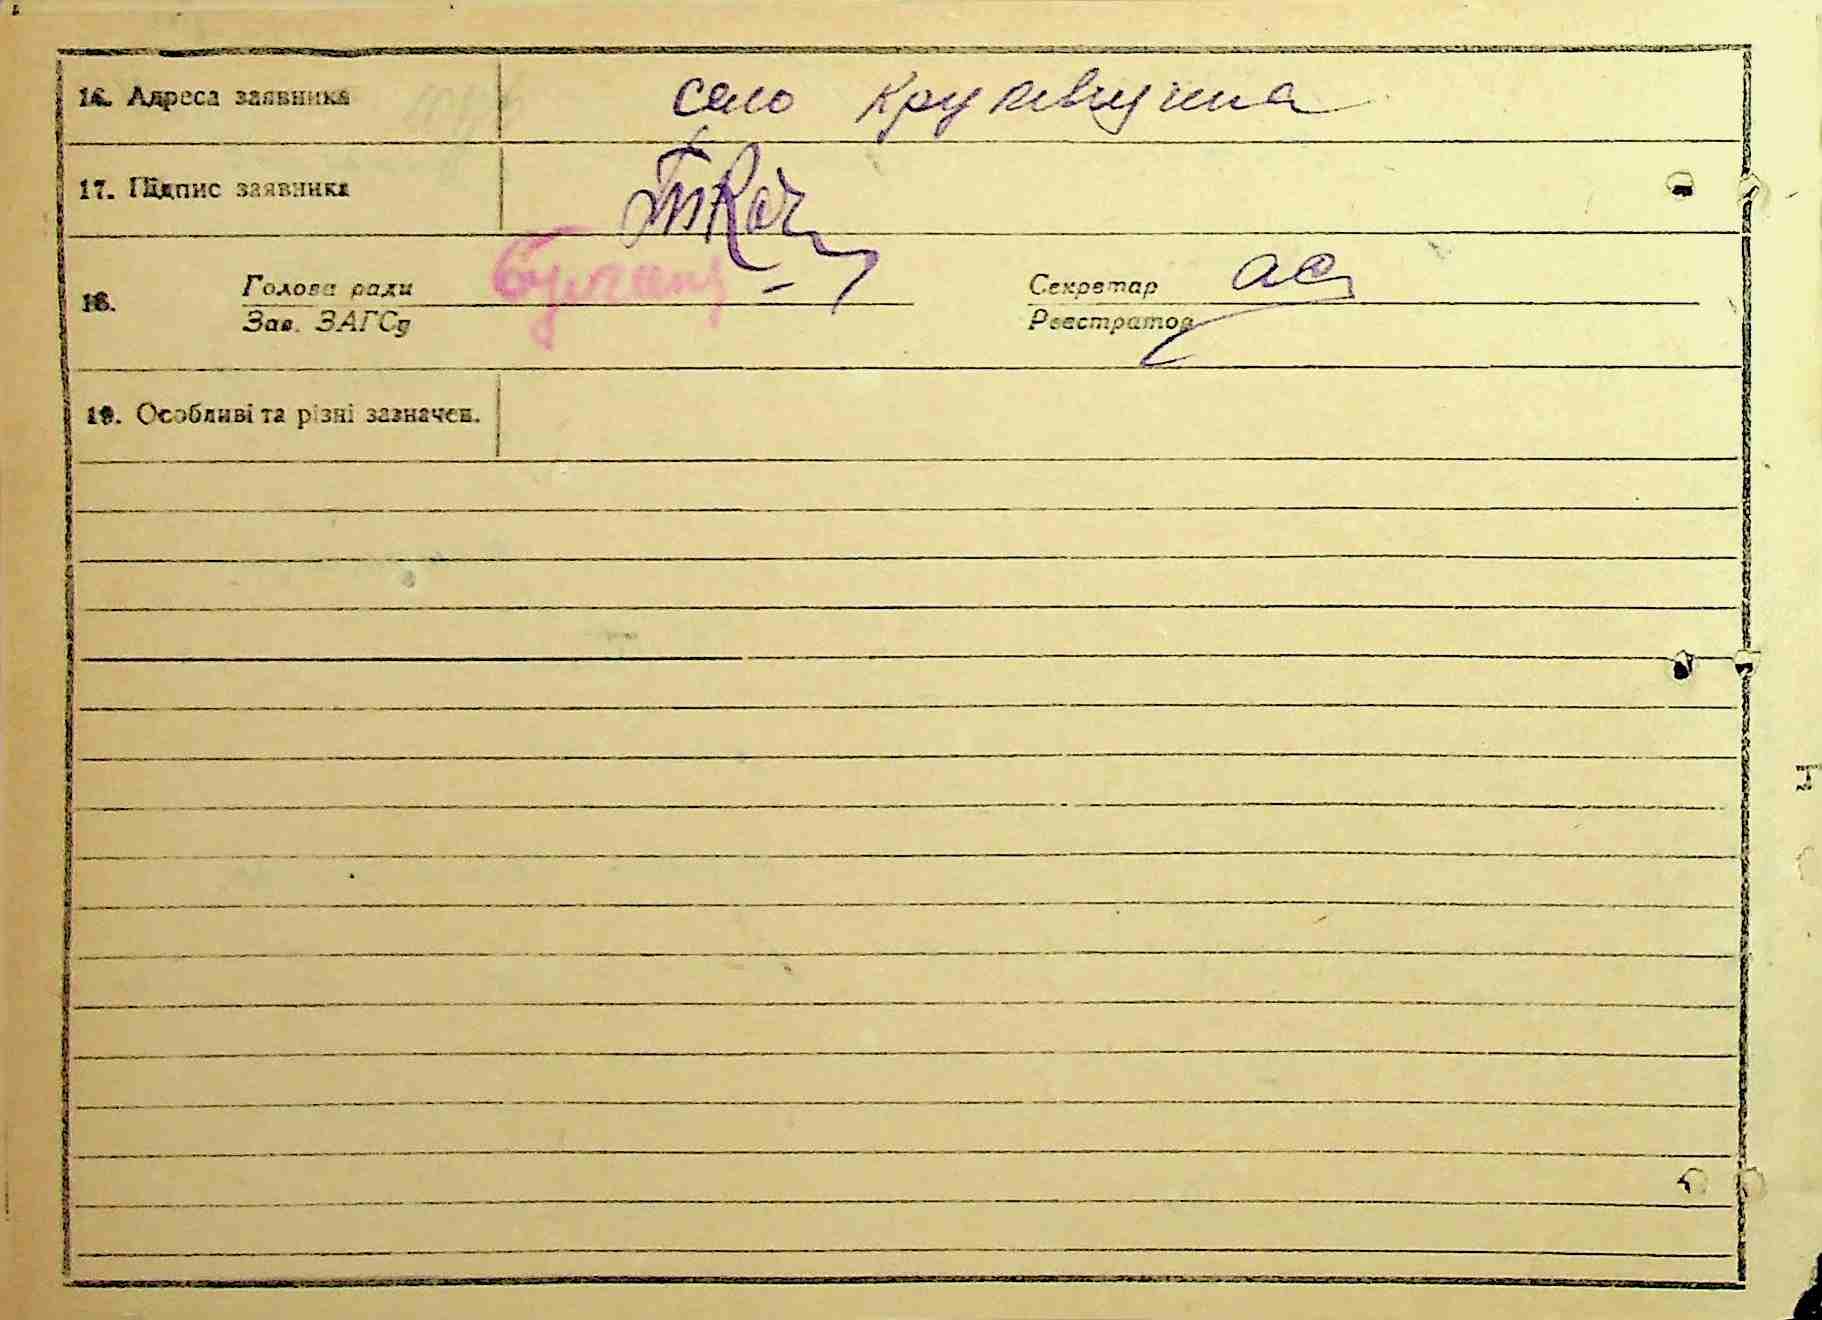 16. Адреса заявника село
17. Підпис заявника Ткач
18. Голова ради Секретар
Зав. ЗАГСу Реєстратор
19. Особливі та різні зазначен.